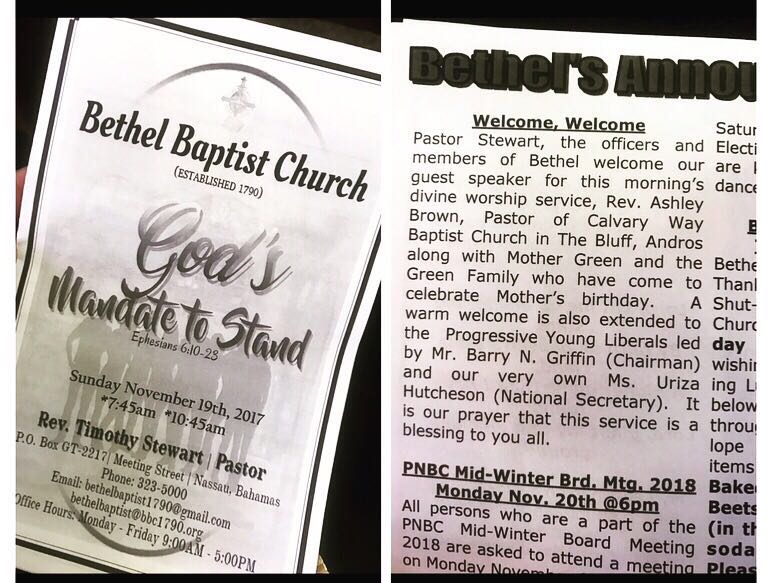 Bethel Baptist Church
(ESTABLISHED 1790)
God's
Mandate to Stand
Ephesians 6:10-23
Sunday November 19th, 2017
*7:45am *10:45am
Rev. Timothy Stewart | Pastor
P.O. Box GT-2217| Meeting Street | Nassau, Bahamas
Phone: 323-5000
Email: bethelbaptist1790@gmail.com
bethelbaptist@bbc1790.org
Office Hours: Monday - Friday 9:00AM - 5:00PM
Bethel's Annou
Welcome, Welcome
Pastor Stewart, the officers and
members of Bethel welcome our
guest speaker for this morning's
divine worship service, Rev. Ashley
Brown, Pastor of Calvary Way
Baptist Church in The Bluff, Andros
along with Mother Green and the
Green Family who have come to
celebrate Mother's birthday. A
warm welcome is also extended to
the Progressive Young Liberals led
by Mr. Barry N. Griffin (Chairman)
and our very own Ms. Uriza
Hutcheson (National Secretary). It
is our prayer that this service is a
blessing to you all.
PNBC Mid-Winter Brd. Mtg. 2018
Monday Nov. 20th @6pm
All persons who are a part of the
PNBC Mid-Winter Board Meeting
2018 are asked to attend a meeting
on Monday Novem
Satur
Electi
are
dance
Bethe
Thanl
Shut-
Churc
day
wishin
ing L
below
throu
lope
items
Bake
Beets
(in th
soda
Pleas